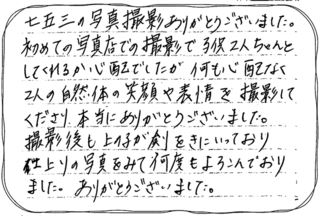 七五三の写真撮影ありがとうございました。
初めての写真店での撮影で子供2人ちゃんと
してくれるか心配でしたが何も心配なく
2人の自然体の笑顔や表情を撮影して
くださり本当にありがとうございました。
撮影後も上の子が創をきにいっており
仕上りの写真をみて何度もよろこんでおり
ました。ありがとうございました。